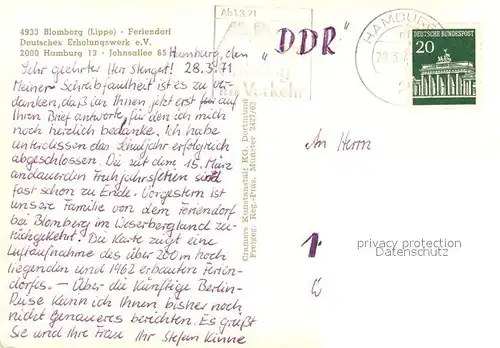 4933 Blomberg (Lippe) - Feriendorf
Deutsches Erholungswerk e.V.
2000 Hamburg 13 - Johnsallee 65
Hamburg, den
28.3.71
Sehr geehrter Herr Stengert!
Meiner Schreibfaulheit ist es zu ver-
danken, daß ich Ihnen jetzt erst für auf
Ihren Brief antworte, für den ich mich
noch herzlich bedanke. Ich habe
unterdessen das Schuljahr erfolgreich
abgeschlossen. Die seit dem 15. März
andauernden Frühjahrsferien sind
fast schon zu Ende. Vorgestern ist
unsere Familie von dem Feriendorf
bei Blomberg im Weserbergland zu-
rückgekehrt. Die Karte zeigt eine
Luftaufnahme des über 200 m hoch
liegenden und 1962 erbauten Ferien-
dorfes. - Über die künftige Berlin-
Reise kann ich Ihnen bisher noch
nicht Genaueres berichten. Es grüßt
Sie und Ihre Frau Ihr Stefan Kinne
Cramers Kunstanstalt KG, Dortmund
Freigeg. Reg.-Präs. Münster 2427/63
Ab 1.3.71
im Verkehr
"DDR"
HAMBURG
DEUTSCHE BUNDESPOST
20
An Herrn
privacy protection
www.ansichtskarten-center.de